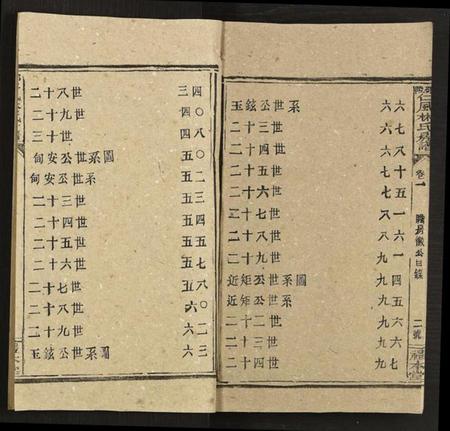 二十八世 三四
二十九世 四〇
三十世 四八
甸安公世系圖 五〇
甸安公世系 五二
二十三世 五三
二十四世 五四
二十五世 五五
二十六世 五七
二十七世 五八
二十八世 六〇
二十九世 六二
玉鉉公世系圖 六三
玉鉉公世系 六六
二十三世 六七
二十四世 六八
二十五世 七十
二十六世 七五
二十七世 八一
二十八世 八六
二十九世 九一
近矩公世系圖 九四
近矩公世系 九五
二十二世 九六
二十三世 九六
二十四世 九七
仁風林氏族譜
卷一
公目錄
二號
本堂